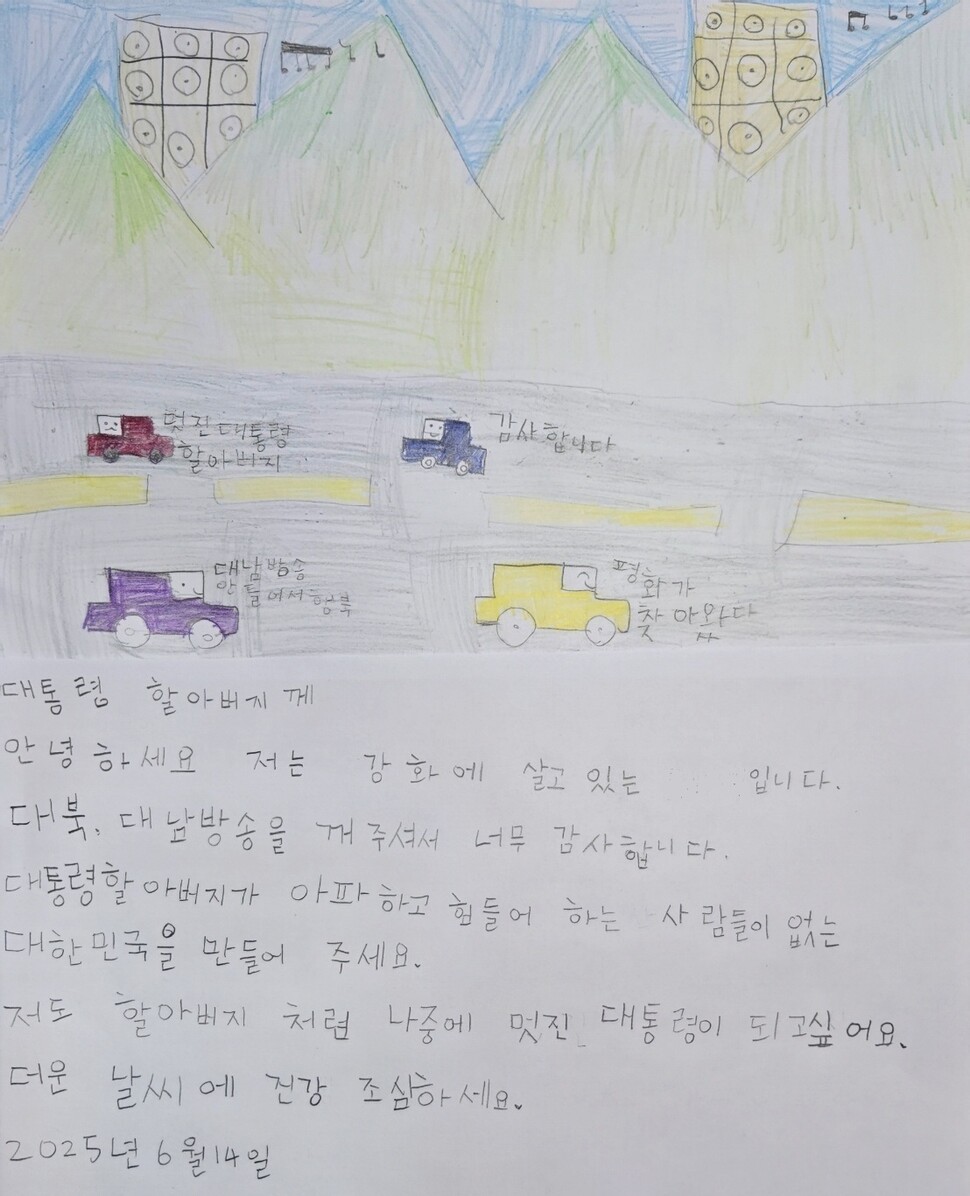 멋진 대통령
할아버지
감사합니다
대남방송
안 들어서 행복
평화가
찾아왔다
대통령 할아버지께
안녕하세요 저는 강화에 살고 있는 입니다.
대북, 대남방송을 꺼주셔서 너무 감사합니다.
대통령할아버지가 아파하고 힘들어 하는 사람들이 없는
대한민국을 만들어 주세요.
저도 할아버지 처럼 나중에 멋진 대통령이 되고싶어요.
더운 날씨에 건강 조심하세요.
2025년 6월 14일